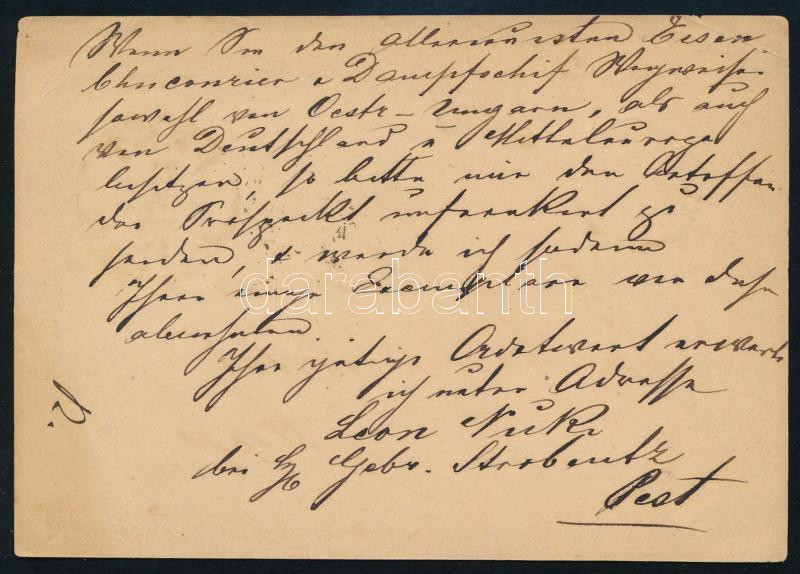 Wenn Sie den allerneuesten Eisen
bhncourier u Dampfschif Wegweiser
sowohl von Oestr-Ungarn, als auch
von Deutschland u Mitteleuropa
besitzen, so bitte mir den betreffen
den Prospeckt unfrankirt zu
senden, u werde ich sodann
Ihnen einige Exemplare von dieser
abnehmen
Ihre gütige Antwort erwarte
ich unter Adresse
Leon
bei Gebr. Strobentz
Pest
darabanth